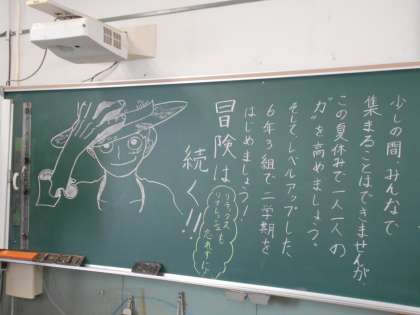 少しの間 みんなで
集まることはできませんが、
この夏休みで一人一人の
"力"を高めましょう。
そして、レベルアップした
6年3組で二学期を
はじめましょう！
冒険は
続く!!
リラックス
することも
忘れずに